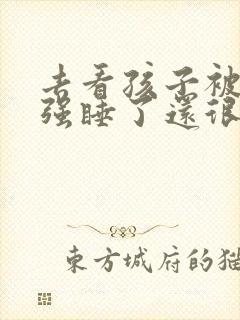 去看孩子被
强睡了還很
東方城府的猫